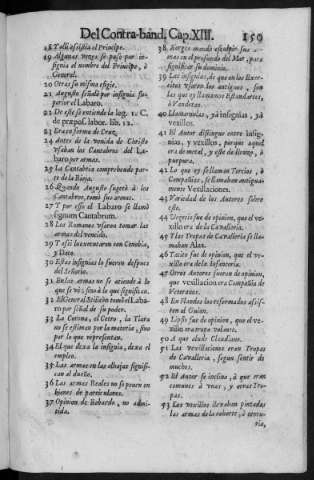 Del Contra-band. Cap. XIII. 159
18 Y allí asistia el Principe.
19 Algunas vezes se puso por in-
signia el nombre del Principe, ò
General.
20 Otras su misma efigie.
21 Augusto señaló por insignia su-
perior el Labaro.
22 De este se entiende la log. 1. C.
de præpos. labor. lib. 12.
23 Era en forma de Cruz.
24 Antes de la venida de Christo
vsaban los Cantabros del La-
baro por armas.
25 La Cantabria comprehende par-
te de la Rioja.
26 Quando Augusto sugetò à los
Cantabros, tomò sus armas.
27 Y por esso el Labaro se llamò
signum Cantabrum.
28 Los Romanos vsaron tomar las
armas del vencido.
29 Y assi lo executaron con Cenobia,
y Daco.
30 Estas insignias lo fueron despues
del Señorio.
31 En las armas no se atiende à lo
que se vè; sino à lo que significan.
32 El General Stilicon tomò el Laba-
ro por señal de su poder.
33 La Corona, el Cetro, la Tiara
no se estiman por la materia, sino
por lo que representan.
34 El que dexa la insignia, dexa el
empleo.
35 Las armas en las alhajas signifi-
can al dueño.
36 Las armas Reales no se ponen en
bienes de particulares.
37 Opinion de Bobardo, no ad-
mitida.
38 Xerges mandò esculpir sus ar-
mas en el profundo del Mar, para
significar su dominio.
39 Las insignias, de que en los Exer-
citos vsaron los antiguos, son
las que oy llamamos Estandartes,
ò Vanderas.
40 Llamaronlas, yà insignias, yà
vexillos.
41 El Autor distingue entre insig-
nias, y vexillos, porque aquel
era de metal, y este de lienço, ò
purpura.
42 Lo que oy se llaman Tercios, ò
Compañias, se llamaban antigua-
mente Vexillaciones.
43 Variedad de los Autores sobre
esto.
44 Vegecio fue de opinion, que el ve-
xillo era de la Cavalleria.
45 Y las Tropas de Cavalleria se lla-
maban Alas.
46 Tacito fue de opinion, que el ve-
xillo era de la Infanteria.
47 Otros Autores fueron de opinion,
que vexillacion era Compañia de
Veteranos.
48 En Flandes los reformados assis-
ten al Guion.
49 Lipsio fue de opinion, que el ve-
xillo era tropa volante.
50 A que alude Claudiano.
51 Las vexillaciones eran Tropas
de Cavalleria, segun sentir de
muchos.
52 El Autor se inclina, à que eran
comunes à vnas, y otras Tro-
pas.
53 Los vexillos llevaban pintadas
las armas de la cohorte, ò centu-
ria,